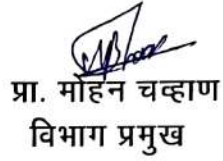 प्रा. मोहन चव्हाण
विभाग प्रमुख